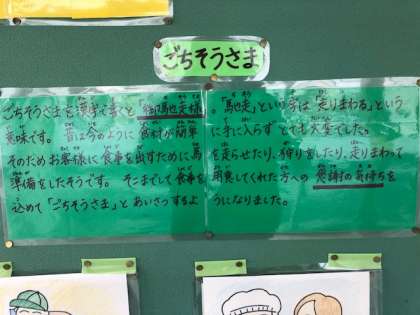 ごちそうさま
ごちそうさまを漢字で書くと「御馳走様」。「馳走」という字は「走りまわる」という
意味です。昔は今のように食材が簡単に手に入らずとても大変でした。
そのためお客様に食事を出すために馬を走らせたり、狩りをしたり、走りまわって
準備をしたそうです。そこまでして食事を用意してくれた方への感謝の気持ちを
込めて「ごちそうさま」とあいさつするようになりました。